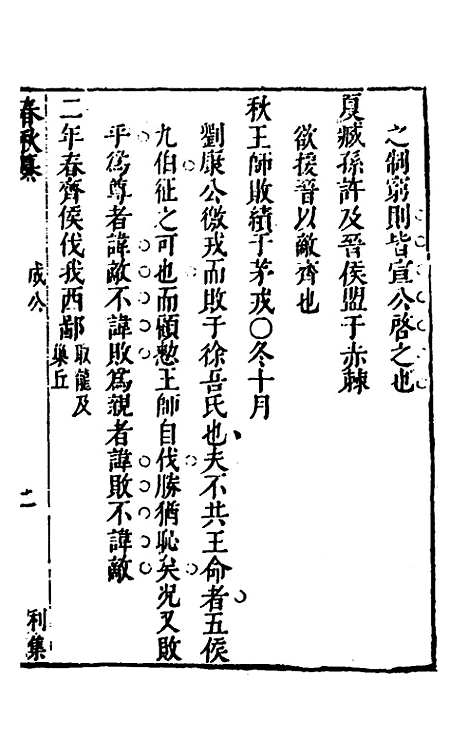 之制窮則皆宣公啓之也
夏臧孫許及晉侯盟于赤棘
欲援晉以敵齊也
秋王師敗績于茅戎〇冬十月
劉康公徼戎而敗于徐吾氏也夫不共王命者五侯
九伯征之可也而顧愁王師自伐勝猶恥矣况又敗
乎爲尊者諱敵不諱敗爲親者諱敗不諱敵
二年春齊侯伐我西鄙取龍及巢丘
春秋纂 成公 二 利集